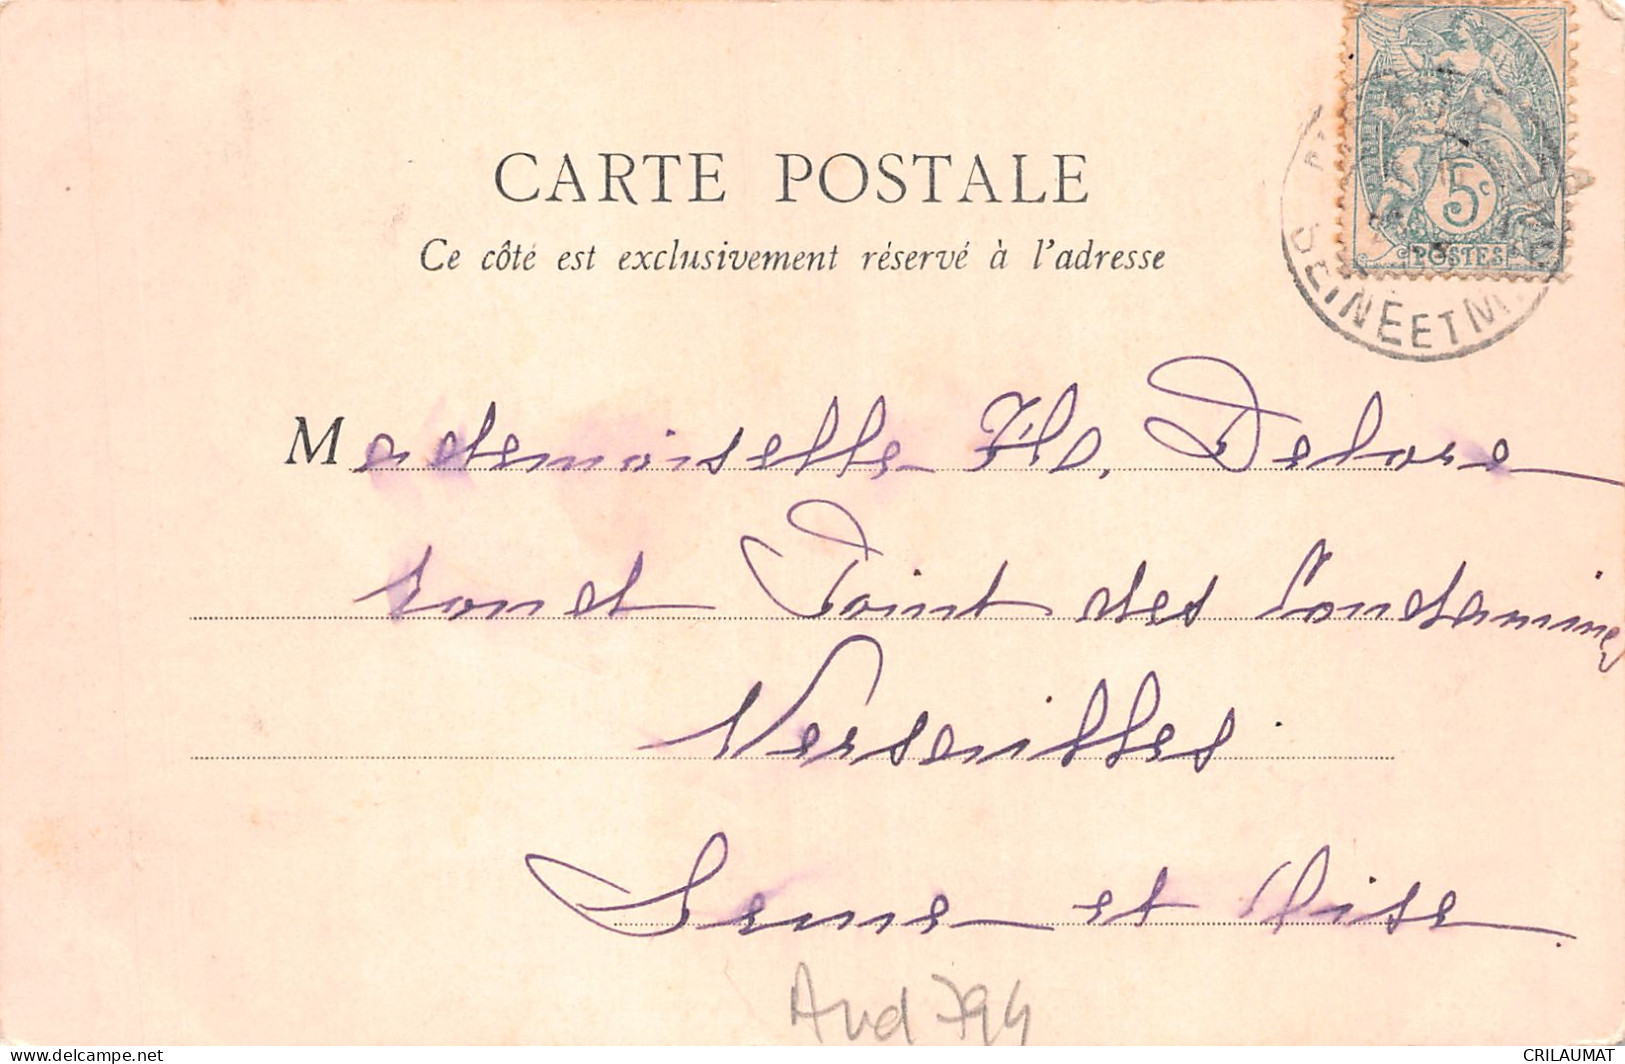 CARTE POSTALE
Ce côté est exclusivement réservé à l'adresse
5c
POSTES
SEINE ET M
Mademoiselle Delose
rond Point des Condamines
Versailles.
Seine et Oise.
And 794
www.delcampe.net
CRILAUMAT